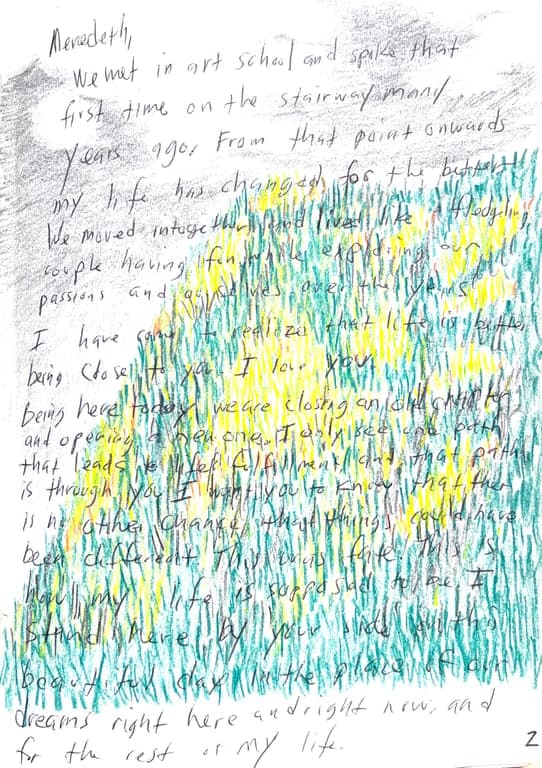 Meredeth,
We met in art school and spoke that
first time on the stairway many
years ago. From that point onwards
my life has changed for the better!
We moved intogether and lived like a fledgeling
couple having fun while exploring our
passions and ourselves over the years.
I have come to realize that life is better
being close to you. I love you.
being here today, we are closing an old chapter
and opening a new one. I only see one path
that leads to life fulfillment and that path
is through you. I want you to know that ther
is no other chance that things could have
been different. This was fate. This is
how my life is supposad to be. I
stand here by your side on this
beautiful day in the place of our
dreams right here and right now, and
for the rest of my life.
2